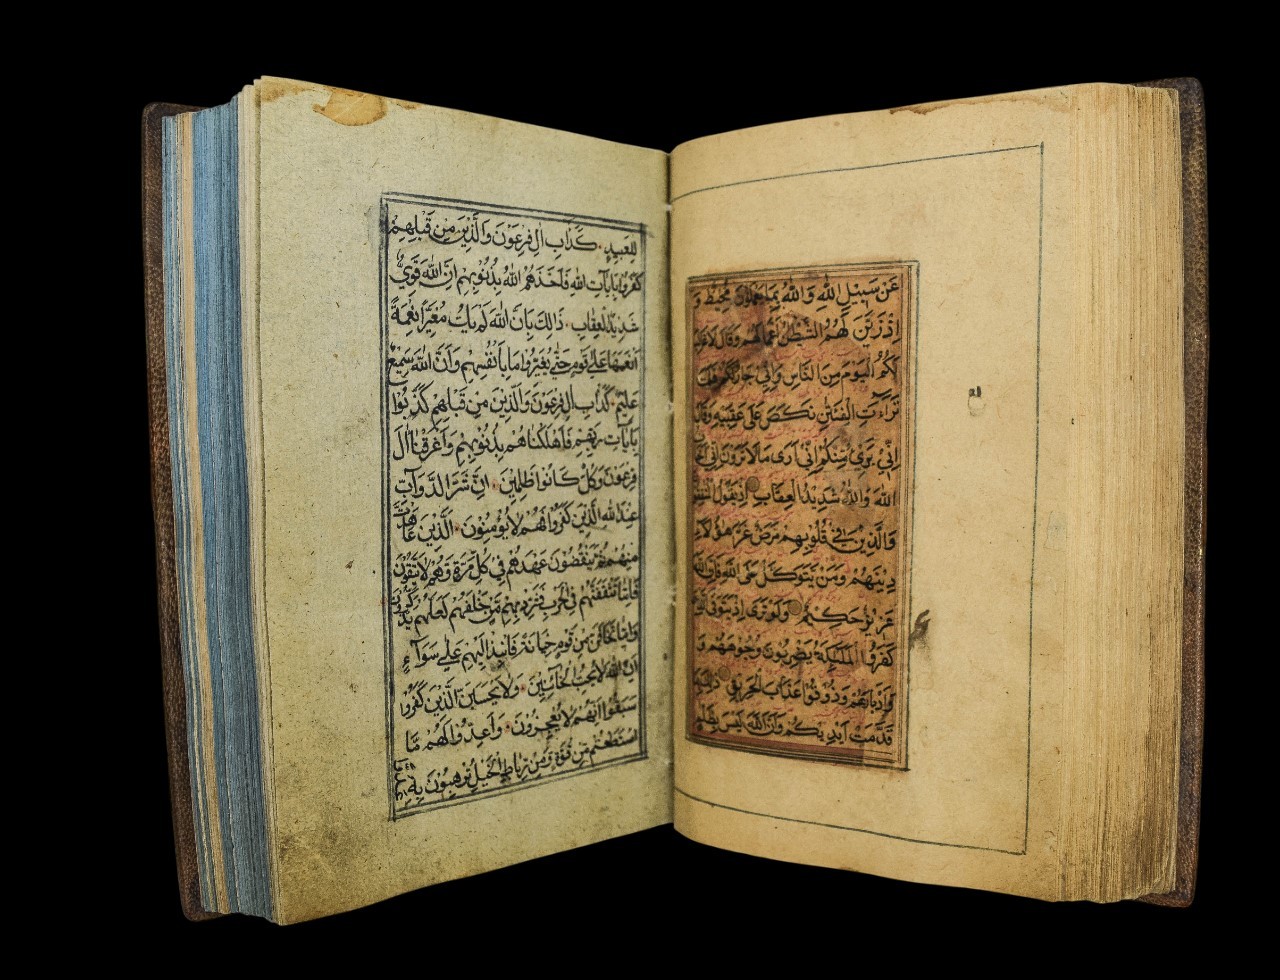 عَن سَبِيلِ اللهِ وَاللهُ بِمَا يَعْمَلُونَ مُحِيطٌ وَ
اِذْ زَيَّنَ لَهُمُ الشَّيْطٰنُ اَعْمَالَهُمْ وَقَالَ لَا غَالِبَ
لَكُمُ الْيَوْمَ مِنَ النَّاسِ وَاِنِّي جَارٌ لَكُمْ فَلَمَّا
تَرَآءَتِ الْفِئَتٰنِ نَكَصَ عَلٰى عَقِبَيْهِ وَقَالَ
اِنِّي بَرِيءٌ مِنْكُمْ اِنِّي اَرٰى مَا لَا تَرَوْنَ اِنِّي
اللهَ وَاللهُ شَدِيدُ الْعِقَابِ اِذْ يَقُولُ
وَالَّذِينَ فِي قُلُوبِهِمْ مَرَضٌ غَرَّ هٰؤُلَآءِ
دِينَهُمْ وَمَنْ يَتَوَكَّلْ عَلَى اللهِ فَاِنَّ اللهَ
عَزِيزٌ حَكِيمٌ وَلَوْ تَرٰى اِذْ يَتَوَفَّى
كَفَرُوا الْمَلٰئِكَةُ يَضْرِبُونَ وُجُوهَهُمْ وَ
اَدْبَارَهُمْ وَذُوقُوا عَذَابَ الْحَرِيقِ ذٰلِكَ
قَدَّمَتْ اَيْدِيكُمْ وَاَنَّ اللهَ لَيْسَ بِظَلَّامٍ
لِلْعَبِيدِ كَدَابِ اٰلِ فِرْعَوْنَ وَالَّذِينَ مِن قَبْلِهِمْ
كَفَرُوا بِاٰيَاتِ اللهِ فَاَخَذَهُمُ اللهُ بِذُنُوبِهِمْ اِنَّ اللهَ قَوِيٌّ
شَدِيدُ الْعِقَابِ ذَالِكَ بِاَنَّ اللهَ لَمْ يَكُ مُغَيِّرًا نِعْمَةً
اَنْعَمَهَا عَلٰى قَوْمٍ حَتّٰى يُغَيِّرُوا مَا بِاَنْفُسِهِمْ وَاَنَّ اللهَ سَمِيعٌ
عَلِيمٌ كَدَابِ اٰلِ فِرْعَوْنَ وَالَّذِينَ مِن قَبْلِهِمْ كَذَّبُوا
بِاٰيَاتِ رَبِّهِمْ فَاَهْلَكْنَاهُمْ بِذُنُوبِهِمْ وَاَغْرَقْنَا اٰلَ
فِرْعَوْنَ وَكُلٌّ كَانُوا ظٰلِمِينَ اِنَّ شَرَّ الدَّوَآبِّ
عِنْدَ اللهِ الَّذِينَ كَفَرُوا فَهُمْ لَا يُؤْمِنُونَ الَّذِينَ عَاهَدْتَ
مِنْهُمْ ثُمَّ يَنْقُضُونَ عَهْدَهُمْ فِي كُلِّ مَرَّةٍ وَهُمْ لَا يَتَّقُونَ
فَاِمَّا تَثْقَفَنَّهُمْ فِي الْحَرْبِ فَشَرِّدْ بِهِمْ مَّنْ خَلْفَهُمْ لَعَلَّهُمْ يَذَّكَّرُونَ
وَاِمَّا تَخَافَنَّ مِن قَوْمٍ خِيَانَةً فَانْبِذْ اِلَيْهِمْ عَلٰى سَوَآءٍ
اِنَّ اللهَ لَا يُحِبُّ الْخَائِنِينَ وَلَا يَحْسَبَنَّ الَّذِينَ كَفَرُوا
سَبَقُوا اِنَّهُمْ لَا يُعْجِزُونَ وَاَعِدُّوا لَهُمْ مَّا
اسْتَطَعْتُمْ مِّن قُوَّةٍ وَمِنْ رِبَاطِ الْخَيْلِ تُرْهِبُونَ بِهِ